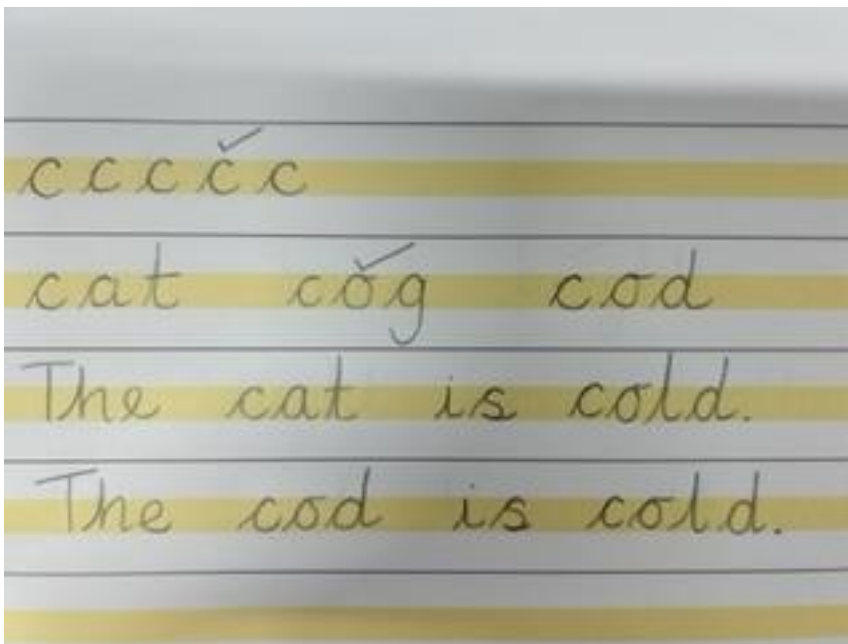 c c c c c
cat cog cod
The cat is cold.
The cod is cold.